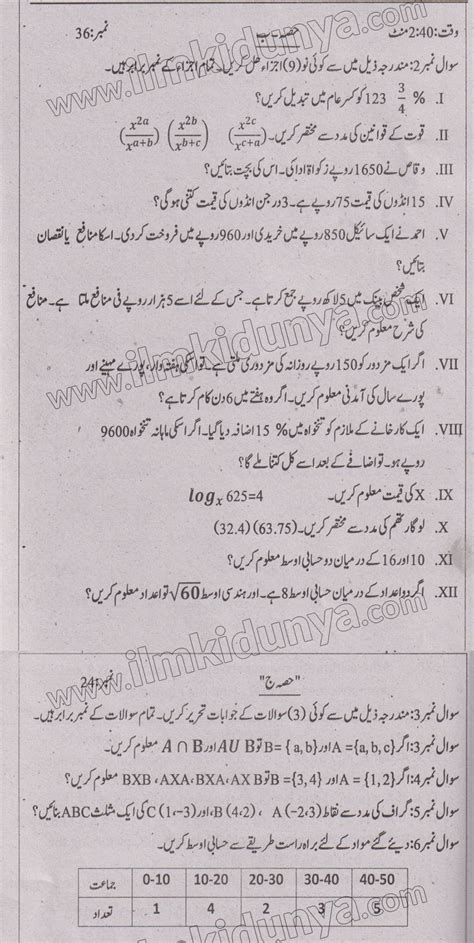 وقت:2:40 منٹ حصہ-ب نمبر:36
سوال نمبر2: مندرجہ ذیل میں سے کوئی نو(9) اجزاء حل کریں۔ تمام اجزاء کے نمبر برابر ہیں۔
I. 123 3/4 % کو کسر عام میں تبدیل کریں؟
II. قوت کے قوانین کی مدد سے مختصر کریں۔ (x^2a/x^a+b) (x^2b/x^b+c) (x^2c/x^c+a)
III. وقاص نے 1650 روپے زکواۃ ادا کی۔ اس کی بچت بتائیں؟
IV. 15 انڈوں کی قیمت 75 روپے ہے۔ 3 درجن انڈوں کی قیمت کتنی ہوگی؟
V. احمد نے ایک سائیکل 850 روپے میں خریدی اور 960 روپے میں فروخت کر دی۔ اسکا منافع یا نقصان
بتائیں؟
VI. ایک شخص بینک میں 5 لاکھ روپے جمع کرتا ہے۔ جس کے لئے اسے 5 ہزار روپے فی منافع ملتا ہے۔ منافع
کی شرح معلوم کریں؟
VII. اگر ایک مزدور کو 150 روپے روزانہ کی مزدوری ملتی ہے۔ تو اسکی ہفتہ وار، پورے مہینے اور
پورے سال کی آمدنی معلوم کریں۔ اگر وہ ہفتے میں 6 دن کام کرتا ہے؟
VIII. ایک کارخانے کے ملازم کو تنخواہ میں 15 % اضافہ دیا گیا۔ اگر اسکی ماہانہ تنخواہ 9600
روپے ہو۔ تو اضافے کے بعد اسے کل کتنا ملے گا؟
IX. X کی قیمت معلوم کریں۔ log_x 625=4
X. لوگارتھم کی مدد سے مختصر کریں۔ (63.75) (32.4)
XI. 10 اور 16 کے درمیان دو حسابی اوسط معلوم کریں؟
XII. اگر دو اعداد کے درمیان حسابی اوسط 8 ہے۔ اور ہندسی اوسط √60 تو اعداد معلوم کریں؟
"حصہ ج" نمبر:24
سوال نمبر3: مندرجہ ذیل میں سے کوئی (3) سوالات کے جوابات تحریر کریں۔ تمام سوالات کے نمبر برابر ہیں۔
سوال نمبر3: اگر A ={a, b, c} اور B= { a, b} تو A U B اور A ∩ B معلوم کریں۔
سوال نمبر4: اگر A = {1, 2} اور B ={3, 4} تو BXB ، AXA، BXA، AX B معلوم کریں؟
سوال نمبر5: گراف کی مدد سے نقاط A (−2،3) ، B (4،2)، اور C (1،−3) کی ایک مثلث ABC بنائیں؟
سوال نمبر6: دیئے گئے مواد کے لئے براہ راست طریقے سے حسابی اوسط کریں۔
جماعت 0-10 10-20 20-30 30-40 40-50
تعداد 1 4 2 3 5
www.ilmkidunya.com
www.ilmkidunya.com
www.ilmkidunya.com
www.ilmkidunya.com